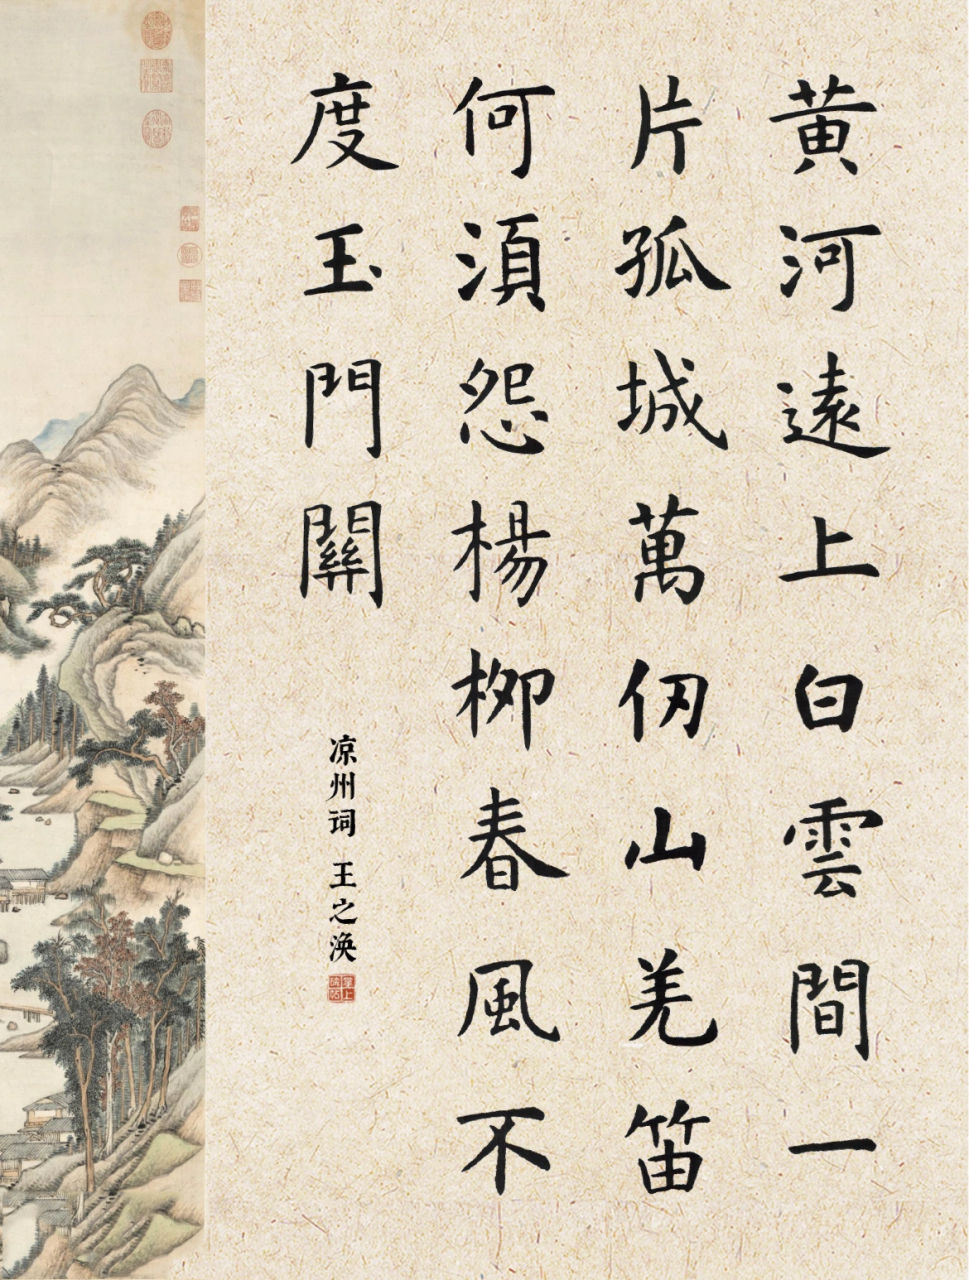 黄河遠上白雲間一
片孤城萬仞山羌笛
何須怨楊柳春風不
度玉門關
凉州词 王之涣